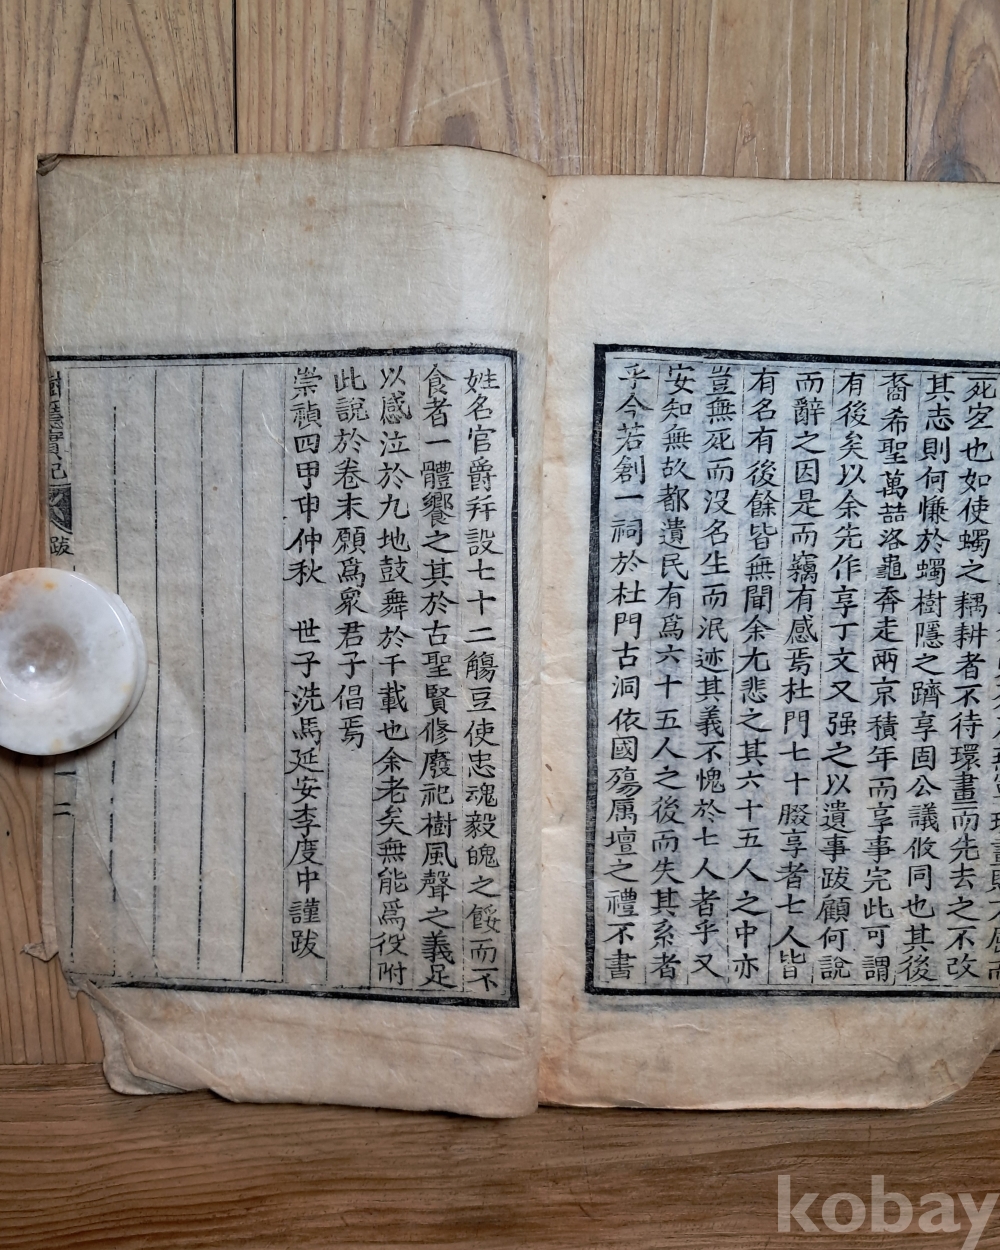 死空也如使蠋之耦耕者不待環畫而先去之不改
其志則何慊於蠋樹隱之躋享固公議攸同也其後
裔希聖萬喆洛龜奔走兩京積年而享事完此可謂
有後矣以余先作享丁文又强之以遺事跋顧何說
而辭之因是而竊有感焉杜門七十腏享者七人皆
有名有後餘皆無聞余尤悲之其六十五人之中亦
豈無死而沒名生而泯迹其義不愧於七人者乎又
安知無故都遺民有爲六十五人之後而失其系者
乎今若創一祠於杜門古洞依國殤厲壇之禮不書
姓名官爵幷設七十二觴豆使忠魂毅魄之餒而不
食者一體饗之其於古聖賢修廢祀樹風聲之義足
以感泣於九地鼓舞於千載也余老矣無能爲役附
此說於卷末願爲衆君子倡焉
崇禎四甲申仲秋 世子洗馬延安李度中謹跋
樹隱實記
跋
二
kobay